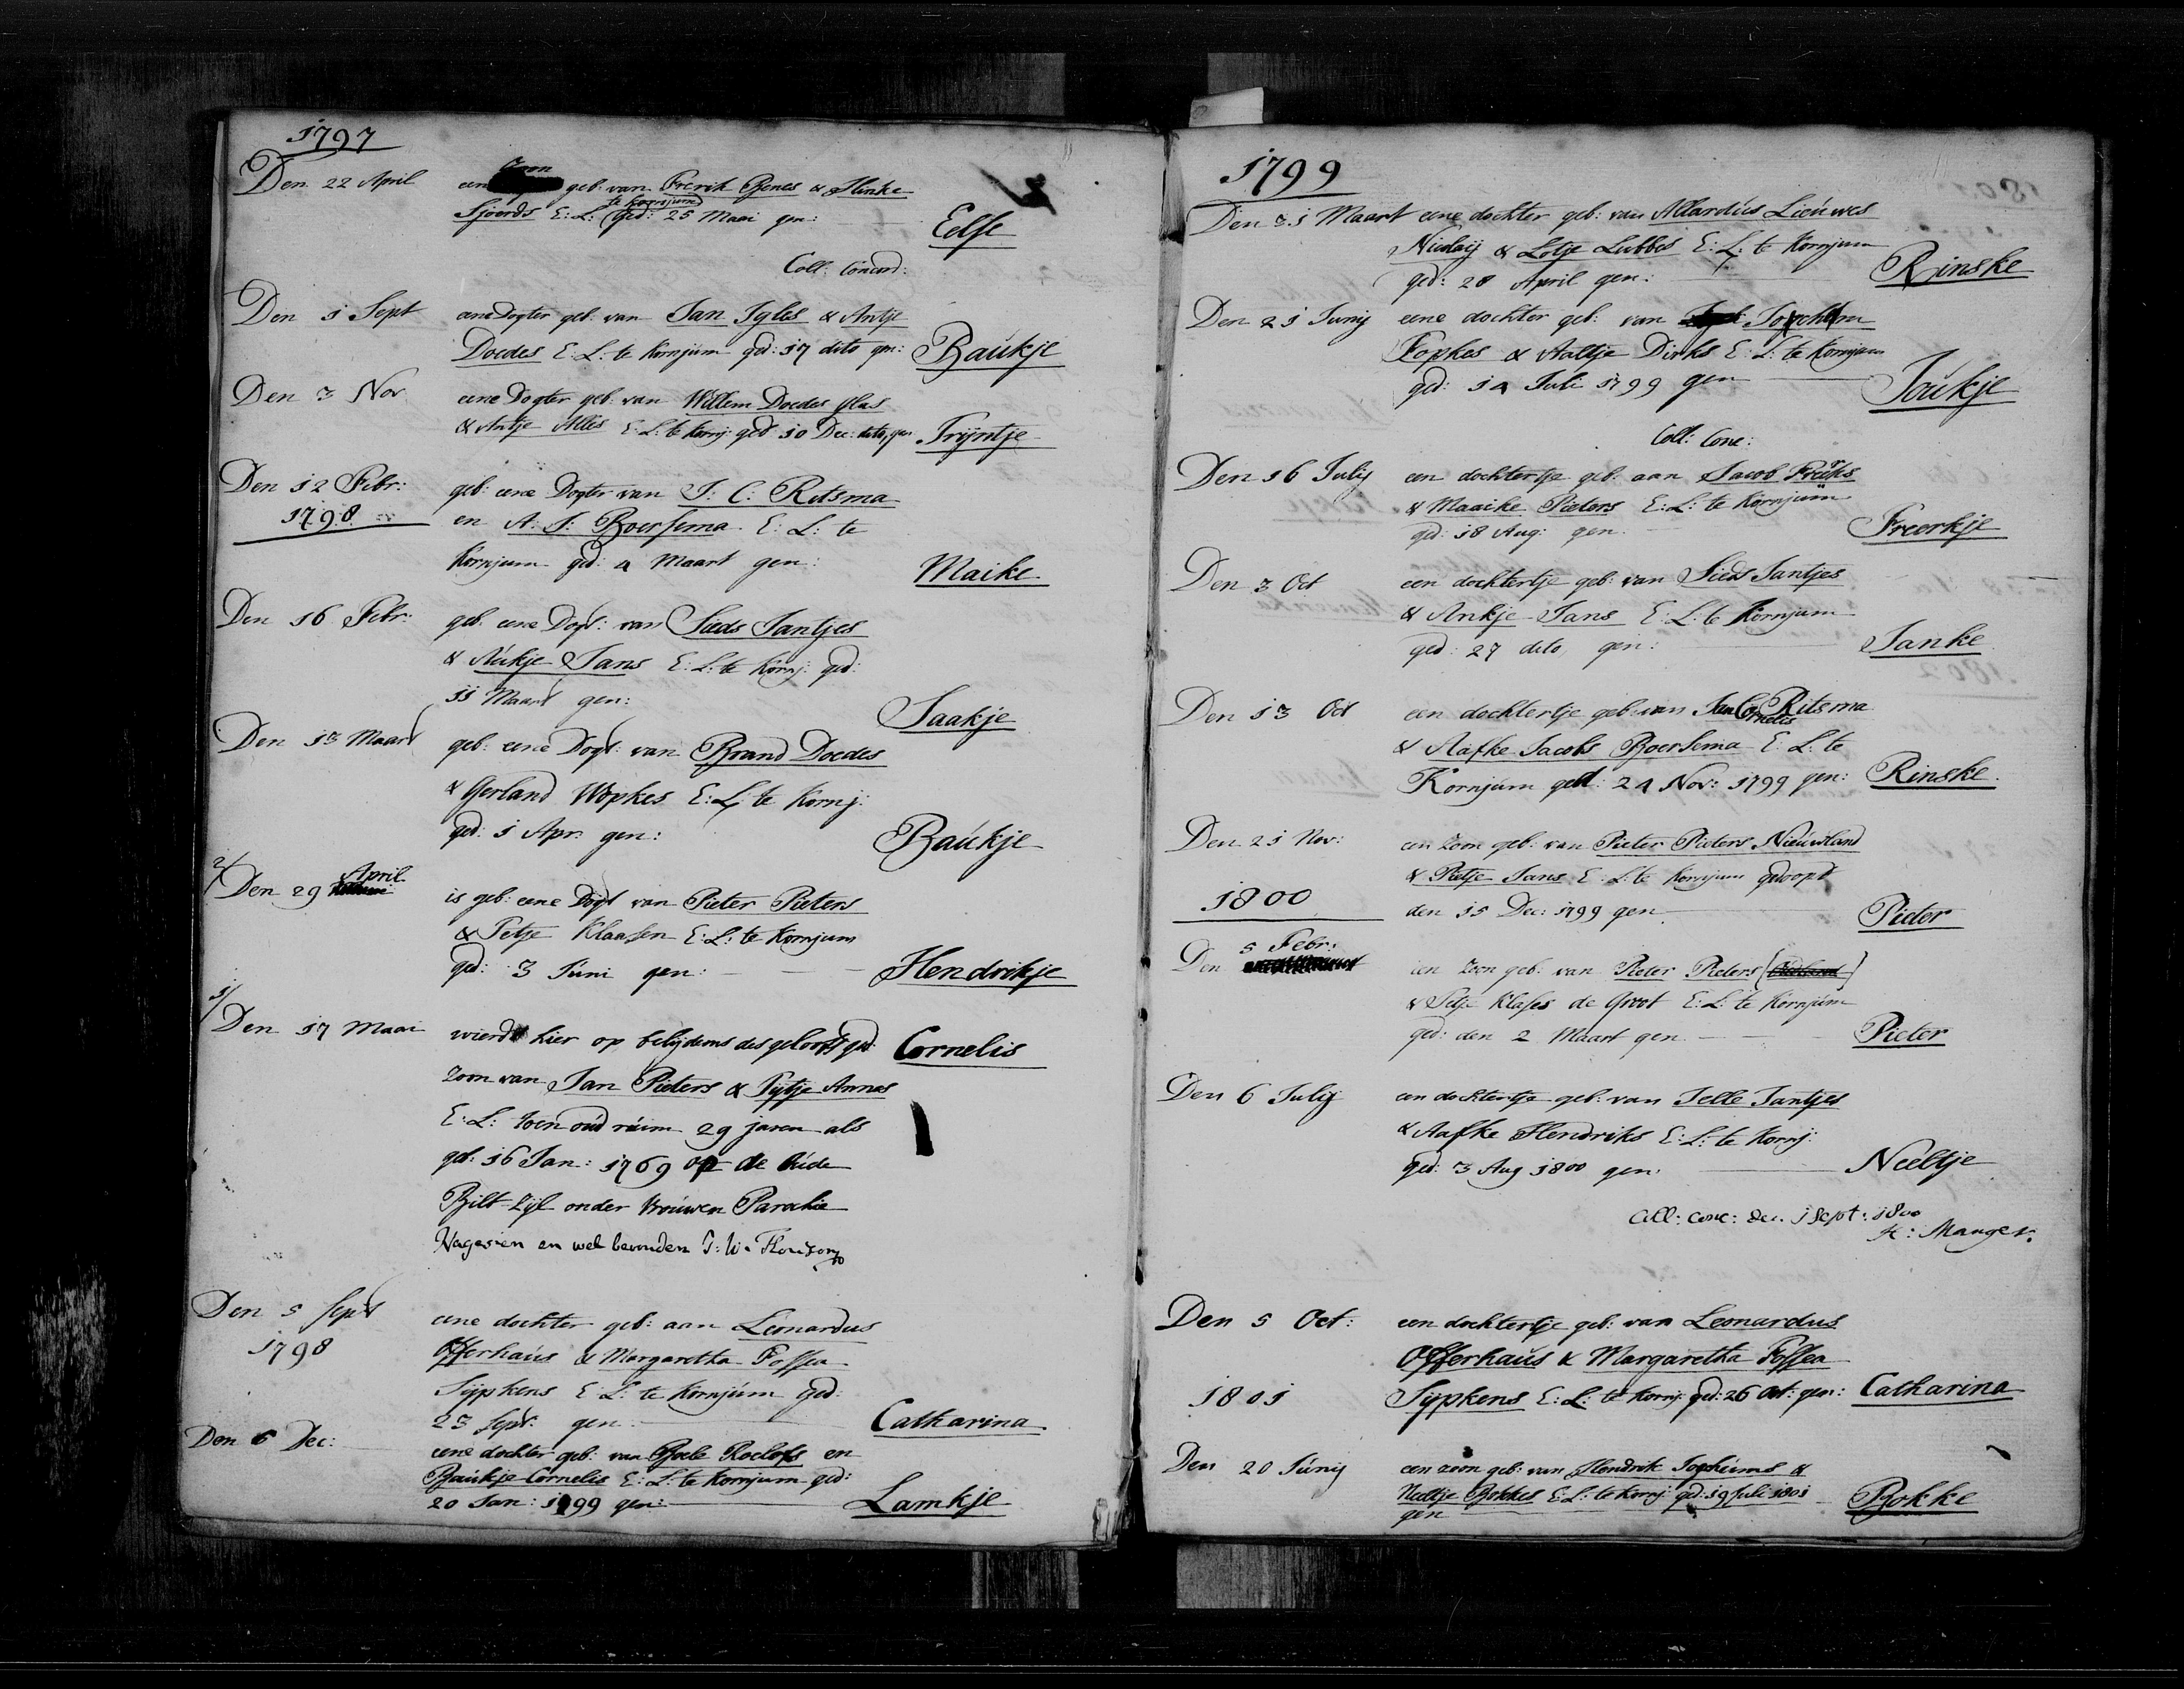 1797
Den 22 April een zoon geb: van Frerik Bjenes & Hinke
Sjoerds E: L: te Kornjum ged: 25 Maai gen: Eelse
Coll: Concord:
Den 1 Sept eene Dogter geb. van Jan Igles & Antje
Doedes E: L: te Kornjum ged: 17 dito gen: Baukje
Den 3 Nov eene Dogter geb. van Willem Doedes Glas
& Antje Alles E: L: te Kornj: ged 10 Dec: dito, gen Trijntje
Den 12 Febr: geb: eene Dogter van J: C: Ritsma
1798 en A: J: Boersema E: L: te
Kornjum ged: 4 Maart gen: Maike
Den 16 Febr: geb. eene Dogt: van Sieds Jantjes
& Aukje Jans E: L: te Kornj: ged:
11 Maart gen: Saakje
Den 13 Maart geb: eene Dogt: van Brand Doedes
& Gerland Wopkes E: L: te Kornj:
ged: 1 Apr: gen: Baukje
2/ Den 29 April is geb: eene Dogt van Pieter Pieters
& Petje Klaasen E: L: te Kornjum
ged: 3 Juni gen: Hendrikje
1/ Den 17 Maai wierd hier op belijdenis des geloofs ged: Cornelis
zoon van Jan Pieters & Tytje Annes
E: L: toen oud ruim 29 jaren als
geb: 16 Jan: 1769 op de Oude
Bilt-Zijl onder Vrouwen Parochie
Nagesien en wel bevonden J: W:
Den 5 Sept eene dochter geb: aan Leonardus
1798 Offerhaus & Margaretha Fossea
Sijpkens E: L: te Kornjum Ged:
23 Sept: gen: Catharina
Den 6 Dec: eene dochter geb: van Roelofs en
Baukje Cornelis E: L: te Kornjum ged:
20 Jan: 1799 gen: Lamkje
1799
Den 21 Maart eene dochter geb: van Allardus Lieuwes
Nicolaij & Lotje Lubbes E: L: te Kornjum
ged: 28 April gen: Rinske
Den 21 Junij eene dochter geb: van Jochem
Fopkes & Aaltje Dirks E: L: te Kornjum
ged: 14 Juli 1799 gen Joukje
Coll: Conc:
Den 16 Julij een dochtertje geb: aan Jacob Freerks
& Maaike Pieters E: L: te Kornjum
ged: 18 Aug: gen: Freerkje
Den 3 Oct een dochtertje geb: van Sieds Jantjes
& Ankje Jans E: L: te Kornjum
ged: 27 dito, gen: Janke
Den 13 Oct een dochtertje geb: van Jan Cornelis Ritsma
& Aafke Jacobs Boersema E: L: te
Kornjum ged: 24 Nov: 1799 gen: Rinske
Den 21 Nov: een zoon geb: van Pieter Pieters Nieuwland
& Pietje Jans E: L: te Kornjum gedoopt
1800 den 15 Dec: 1799 gen Pieter
Den 5 Febr: een zoon geb: van Pieter Pieters
& Petje Klases de Groot E: L: te Kornjum
ged: den 2 Maart gen Pieter
Den 6 Julij een dochtertje geb: van Jelle Jantjes
& Aafke Hendriks E: L: te Kornj:
ged: 3 Aug 1800 gen: Neeltje
Coll: conc: den 1 Sept: 1800
H: Manger.
Den 5 Oct: een dochtertje geb: van Leonardus
Offerhaus & Margaretha Fossea
1801 Sypkens E: L: te Kornj: ged: 26 Oct: gen: Catharina
Den 20 Junij een zoon geb: van Hendrik Jochums &
Neeltje Bokkes E: L: te Kornj: ged: 19 Juli 1801
gen Bokke